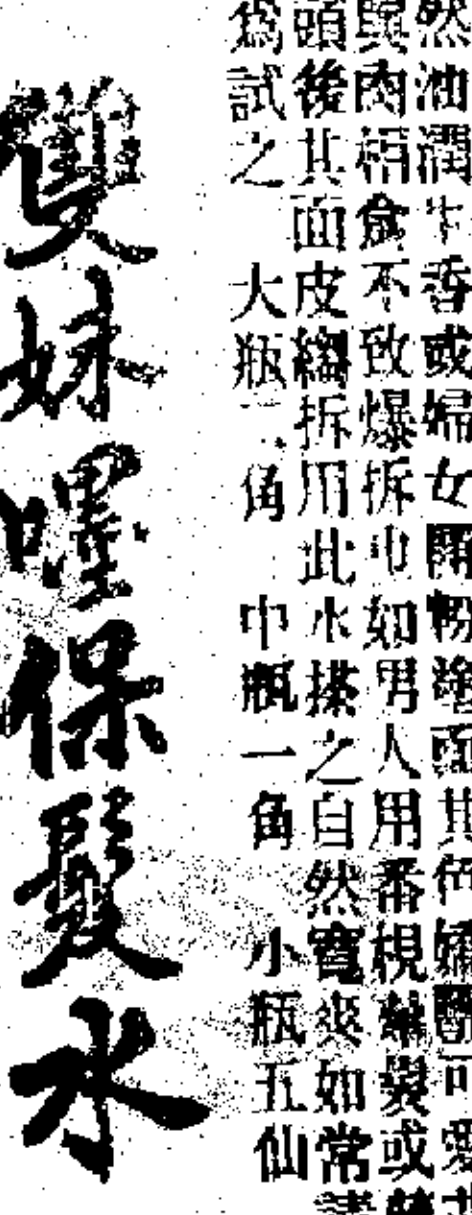 然油潤生香或婦女開粉塗面其色嬌艷可愛
與肉相食不致爆拆也如男人用番梘或
頭後其面皮縐拆用此水搽之自然寬爽如常請
爲試之 大瓶二角 中瓶一角 小瓶五仙
雙妹嚜保髮水